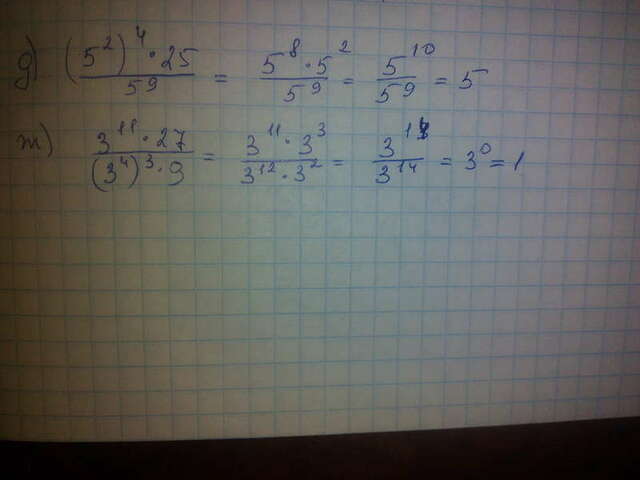 д) (5²)⁴ · 25 / 5⁹ = 5⁸ · 5² / 5⁹ = 5¹⁰ / 5⁹ = 5
т) 3¹¹ · 27 / (3⁴)³ · 9 = 3¹¹ · 3³ / 3¹² · 3² = 3¹⁴ / 3¹⁴ = 3⁰ = 1